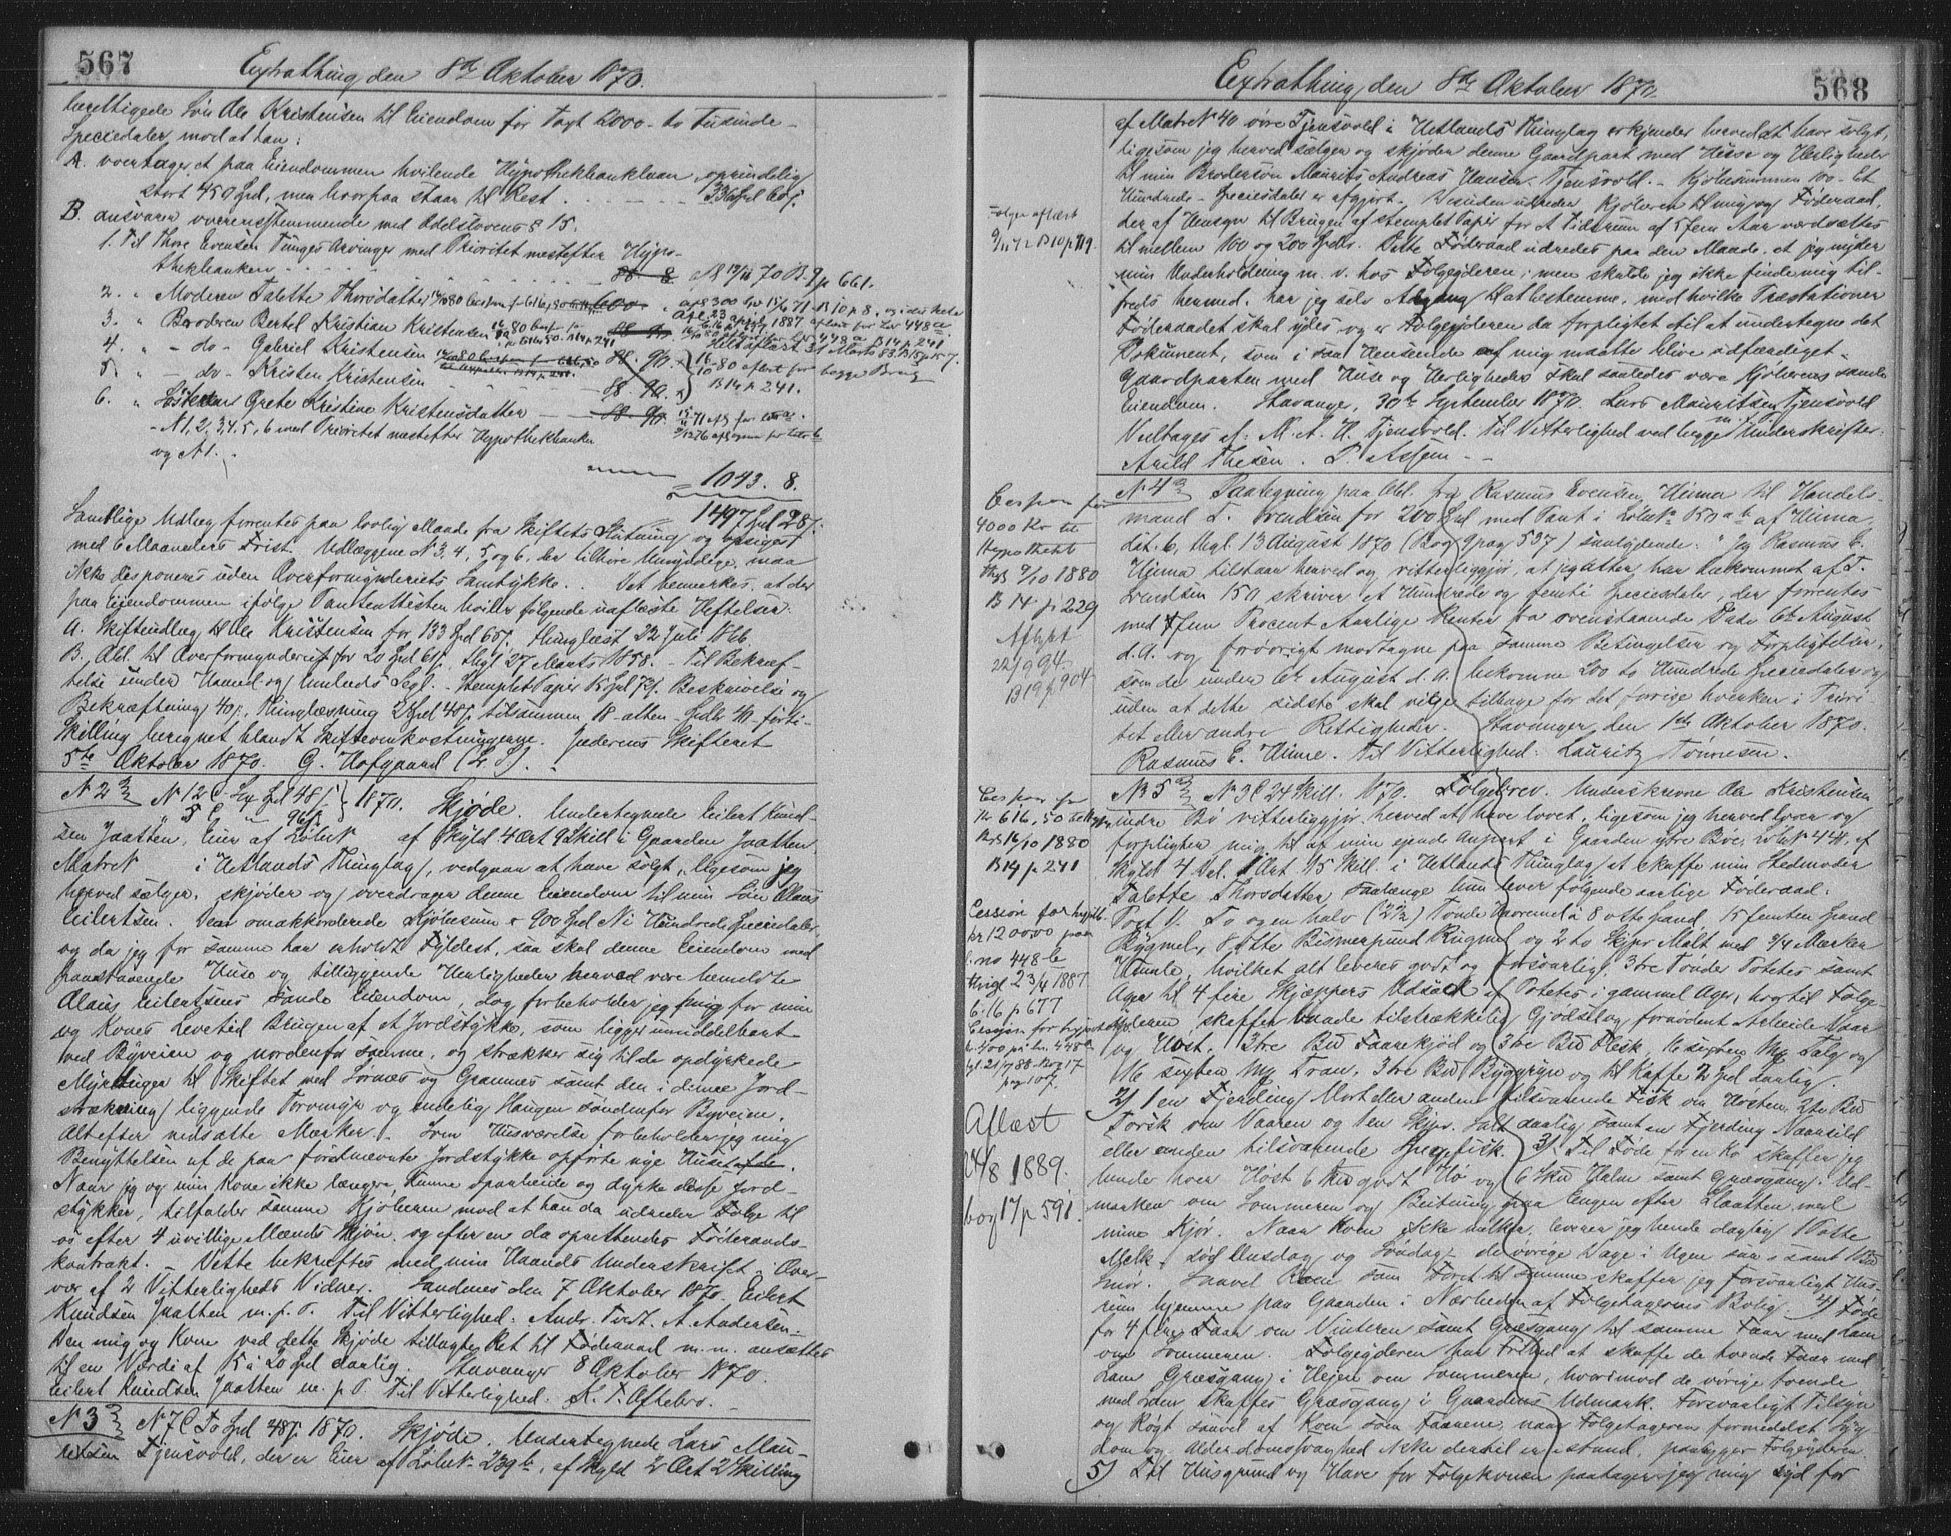 567
Extrathing den 8de Oktober 1870.
berettigede Søn Ole Kristensen til Eiendom for Taxt 2000 - to Tusinde -
Speciedaler mod at han:
A. overtager et paa Eiendommen hvilende Hypothekbanklaan, oprindelig
stort 450 Spd, men hvorpaa staar til Rest . . . . . 336 Spd 60 s.
B. ansvarer overensstemmende med Odelslovens § 15.
1. Til Thore Evensen Tunges Arvinger med Prioritet næstefter Hypo-
thekbanken . . . . 88 - 8 p 661.
2. " Moderen Talette Thorsdatter 600
3. " Broderen Bertel Kristian Kristensen
4. " - do - Gabriel Kristensen 88. 90.
5. " - do - Kristen Kristensen 88. 90. B 14 p. 241.
6. " Søsteren Grete Kristine Kristensdatter 88. 90.
- N 1, 2, 3, 4, 5, 6 med Prioritet næstefter Hypothekbanken
og N 1.
1043. 8.
1497 Spd 28 s.
Samtlige Udlæg forrentes paa lovlig Maade fra Skiftets Slutning og opsiges
med 6 Maaneders Frist. Udlæggene N 3, 4, 5, og 6, der tilhøre Umyndige, maa
ikke disponeres uden Overformynderiets Samtykke. Det bemærkes, at der
paa Eiendommen ifølge Panteattesten hviler følgende uaflæste Heftelser:
A. Skifteudlæg til Ole Kristensen for 133 Spd 60 s., thinglæst 22 Juli 1866
B. Obl. til Overformynderiet for 20 Spd 61 s., thgl. 27 Marts 1858. - Til Bekræf-
telse under Haand og Embeds Segl. - Stemplet Papir 15 Spd 72 s. Beskrivelse og
Bekræftning 40 s., Thinglæsning 2 Spd 48 s., tilsammen 18 - atten - Spdlr 40 - førti -
Skilling beregnet blandt Skifteomkostningerne. Jæderens Skifteret
5te Oktober 1870. G. Hofgaard (L. S.).
N 2 N 12 C - Sex Spd 48 s. 1870. Skjøde. Undertegnede Eilert Knud-
" 8 C 96 s.
sen Jaatten, Eier af Løbe N af Skyld 4 Ort 9 Skill i Gaarden Jaatten,
Matr N i Hetlands Thinglag, vedgaar at have solgt, ligesom jeg
herved sælger, skjøder og overdrager denne Eiendom til min Søn Olaus
Eilertsen. Den omakkorderede Kjøbesum er 900 Spd Ni Hundrede Speciedaler,
og da jeg for samme har erholdt Fyldest, saa skal denne Eiendom med
paastaaende Huse og tilliggende Herligheder herved være hemeldte
Olaus Eilertsens sande Eiendom, dog forbeholder jeg mig for min
og Kones Levetid Brugen af et Jordstykke, som ligger umiddelbart
ved Byveien og nordenfor samme, og strækker sig til de opdyrkede
Myrteiger til Skiftet med Sørnæs og Grannæs samt den i denne Jord-
strækning liggende Torvmyr og endelig Haugen søndenfor Byveien,
alt efter nedsatte Mærker. Som Husværelse forbeholder jeg mig
Benyttelsen af de paa førstnævnte Jordstykke opførte nye Huse.
Naar jeg og min Kone ikke længere kunne oparbeide og dyrke disse Jord-
stykker, tilfalder samme Kjøberen mod at han da udreder Følge til
os efter 4 uvillige Mænds Skjøn og efter en da oprettendes Føderaads-
kontrakt. - Dette bekræftes med min Haands Underskrift i Over-
vær af 2 Vitterligheds Vidner. Sandnes den 7 Oktober 1870. Eilert
Knudsen Jaatten m. p. P. Til Vitterlighed. Andr. Tvedt. A. Andersen.
Den mig og Kone ved dette Skjøde tillagte Ret til Føderaad m. m. ansættes
til en Værdi af 15 à 20 Spd aarlig. Stavanger 8 Oktober 1870.
Eilert Knudsen Jaatten m. p. P. Til Vitterlighed. K. T. Oftebro.
N 3 N 7 C To Spd 48 s. 1870. Skjøde. Undertegnede Lars Mau-
ritsen Tjensvold, der er Eier af Løbe N 239 b, af Skyld 2 Ort 2 Skilling
568
Extrathing den 8de Oktober 1870.
af Matr N 40 øvre Tjensvold i Hetlands Thinglag erkjender herved at have solgt,
ligesom jeg herved sælger og skjøder denne Gaardpart med Huse og Herligheder
til min Brodersøn Maurits Andreas Hansen Tjensvold. - Kjøbesummen 100 - Et
Hundrede - Speciesdaler er afgjort. - Desuden udreder Kjøberen til mig og Føderaad,
der af Hensyn til Brugen af stemplet Papir for et Tidsrum af 5 fem Aar værdsættes
til mellem 100 og 200 Spdlr. Dette Føderaad udredes paa den Maade, at jeg nyder
min Underholdning m. v. hos Følgeyderen; men skulde jeg ikke finde mig til-
freds hermed, har jeg selv Adgang til at bestemme, med hvilke Præstationer
Føderaadet skal ydes og er Følgeyderen da forpligtet til at undertegne det
Dokument, som i saa Henseende af mig maatte blive udfærdiget.
Gaardparten med Huse og Herligheder skal saaledes være Kjøberens sande
Eiendom. Stavanger, 30te September 1870. Lars Mauritsen Tjensvold
Vedtages af: M. A. H. Tjensvold. Til Vitterlighed ved begges Underskrifter:
Arild Thesen. T. Assen. - -
N 4 Paategning paa Obl. fra Rasmus Evensen Hinna til Handels-
mand T. Svendsen for 200 Spd med Pant i Løbe N 150 a b af Hinna,
dat. 6, thgl. 13 August 1870 (Bog 9 pag 537) saalydende: "Jeg Rasmus E.
Hinna tilstaar herved og vitterliggjør, at jeg atter har bekommet af T.
Svendsen 150 skriver et Hundrede og femti Speciesdaler, der forrentes
med fem Procent Aarlige Renter fra ovenstaaende Dato 6te August
d. A. og forøvrigt modtagne paa samme Betingelser og Forpligtelser,
som de under 6te August d. A. bekomne 200 to Hundrede Speciedaler og
uden at dette sidste skal vige tilbage for det forrige hverken i Priori
tet eller andre Rettigheder. Stavanger den 1ste Oktober 1870.
Rasmus E. Hinne. Til Vitterlighed: Lauritz Tønnesen.
N 5 N 3 C 24 Skill. 1870. Følgebrev. Underskrevne Ole Kristensen
indre Bø vitterliggjør herved at have lovet, ligesom jeg herved lover og
forpligter mig til af min eiende Anpart i Gaarden ydre Bøe, Løbe N 448, af
Skyld 4 Del. 1 Ort 15 Skill. i Hetlands Thinglag at skaffe min Stedmoder
Talette Thorsdatter saalænge hun lever følgende aarlige Føderaad:
Post 1). To og en halv (2½) Tønde Havremel à 8 otte Spand, 15 femten Spand
Bygmel, 8 otte Bismerpund Rugmel og 2 to Skjpr Malt med ¾ Mærker
Humle, hvilket alt leveres godt og forsvarligt, 3 tre Tønder Potetes samt
Ager til 4 fire Skjæppers Udsæd af Potetes i gammel Ager, hvortil Følge-
yderen skaffer baade tilstrækkelig Gjødsel og fornødent Arbeide Vaar
og Høst. 3 tre Bd Faarekjød og 3 tre Bd Flesk, 16 sexten Mk Talg og
16 sexten Mk Tran, 3 tre Bd Byggryn og til Kaffe 2 Spd aarlig.
2) 1 en Fjerding Mort eller anden tilsvarende Fisk om Høsten, 2 to Bd
Torsk om Vaaren og 1 en Skjpr. Salt aarlig samt en Fjerding Vaarsild
eller anden tilsvarende Spegefisk. 3) Til Føde for en Ko skaffer jeg
hende hver Høst 6 Skd godt Hø og 6 Skd Halm samt Græsgang i Ud-
marken om Sommeren og Beitning paa Engen efter Slaatten med
mine Kjør. Naar Koen ikke melker, leverer jeg hende daglig 1 Potte
Melk, sød Onsdag og Søndag, de øvrige Dage i Ugen sur, samt 1 Bd
Smør. Saavel Koen som Foret til samme skaffer jeg Forsvarligt Hus-
rum hjemme paa Gaarden i Nærheden af Følgetagerens Bolig. 4) Føde
for 4 fire Faar om Vinteren samt Græsgang til samme Faar med Lam
om Sommeren. Følgeyderen har Frihed at skaffe de tvende Faar med
Lam Græsgang i Hejen om Sommeren, hvorimod de øvrige tvende
med Lam skaffes Græsgang i Gaardens Udmark. Forsvarligt Tilsyn
og Røgt saavel af Koen som Faarene, naar Følgetageren formedelst Syg
dom og Alderdomssvaghed ikke dertil er i stand, paaligger Følgeyderen.
5) Til Husgrund og Have for Følgekonen paatager jeg mig syd for
Følger aflæst
9/11 72 B 10 p 719.
Ces paa
4000 Kr til
Hypothekb
thgl 9/10 1880
B 14 p 229
Aflyst
22/9 94
B 19 p 904
Ces paa
Kr 616,50
thgl 16/10 1880
B 14 p 241
Cession for hypotb.
kr 1200.00 paa
l. no 448 b
thgl 23/4 1887
b. 16 p 677
Cession for hypotb
kr 400 på l. n. 448 a
bog 17
pag 107.
Aflæst
24/8 1889.
bog 17 p 591.